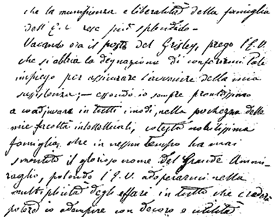 che la munificenza e liberalità della famiglia
dell'E.V. rese più splendido -
Vacando ora il posto del Grisley, prego l'E.V.
che si abbia la degnazione di conferirmi tale
impiego per assicurare l'avvenire della mia
sussistenza; - essendo io sempre prontissimo
a coadjuvare in tutti i modi, nella pochezza delle
mie facoltà intellettuali, cotesta nobilissima
famiglia, che in nessun tempo ha mai
smentito il glorioso nome del Grande Ammi-
raglio, potendo l'E.V. adoperarmi nella
molteplicità degli affari in tutto che crederà
potere io adempire con decoro e utilità